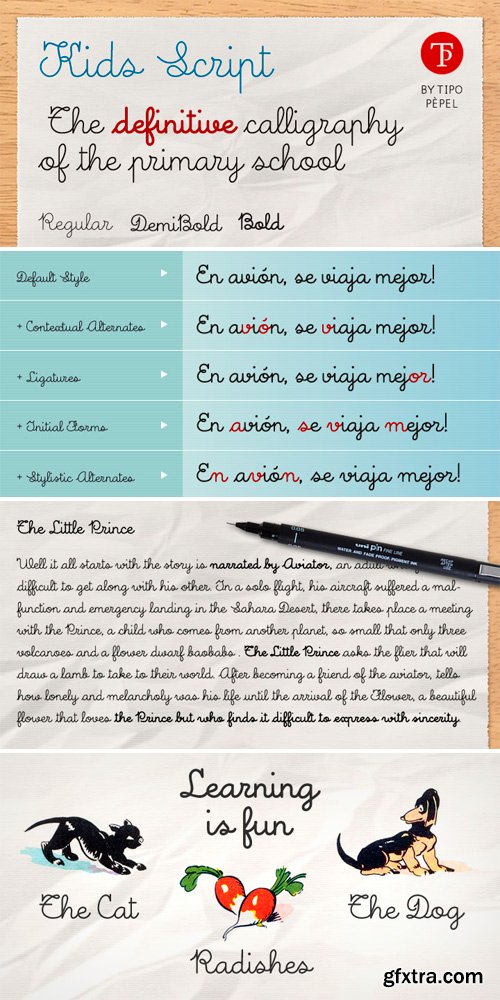 Kids Script
TP
BY TIPO
PÈPEL
The definitive calligraphy
of the primary school
Regular DemiBold Bold
Default Style En avión, se viaja mejor!
+ Contextual Alternates En avión, se viaja mejor!
+ Ligatures En avión, se viaja mejor!
+ Initial Forms En avión, se viaja mejor!
+ Stylistic Alternates En avión, se viaja mejor!
The Little Prince
0.05
uni pin FINE LINE
WATER AND FADE PROOF PIGMENT INK
Well it all starts with the story is narrated by Aviator, an adult
difficult to get along with his other. In a solo flight, his aircraft suffered a mal-
function and emergency landing in the Sahara Desert, there takes place a meeting
with the Prince, a child who comes from another planet, so small that only three
volcanoes and a flower dwarf baobabs . The Little Prince asks the flier that will
draw a lamb to take to their world. After becoming a friend of the aviator, tells
how lonely and melancholy was his life until the arrival of the Flower, a beautiful
flower that loves the Prince but who finds it difficult to express with sincerity.
Learning
is fun
The Cat
The Dog
Radishes
gfxtra.com